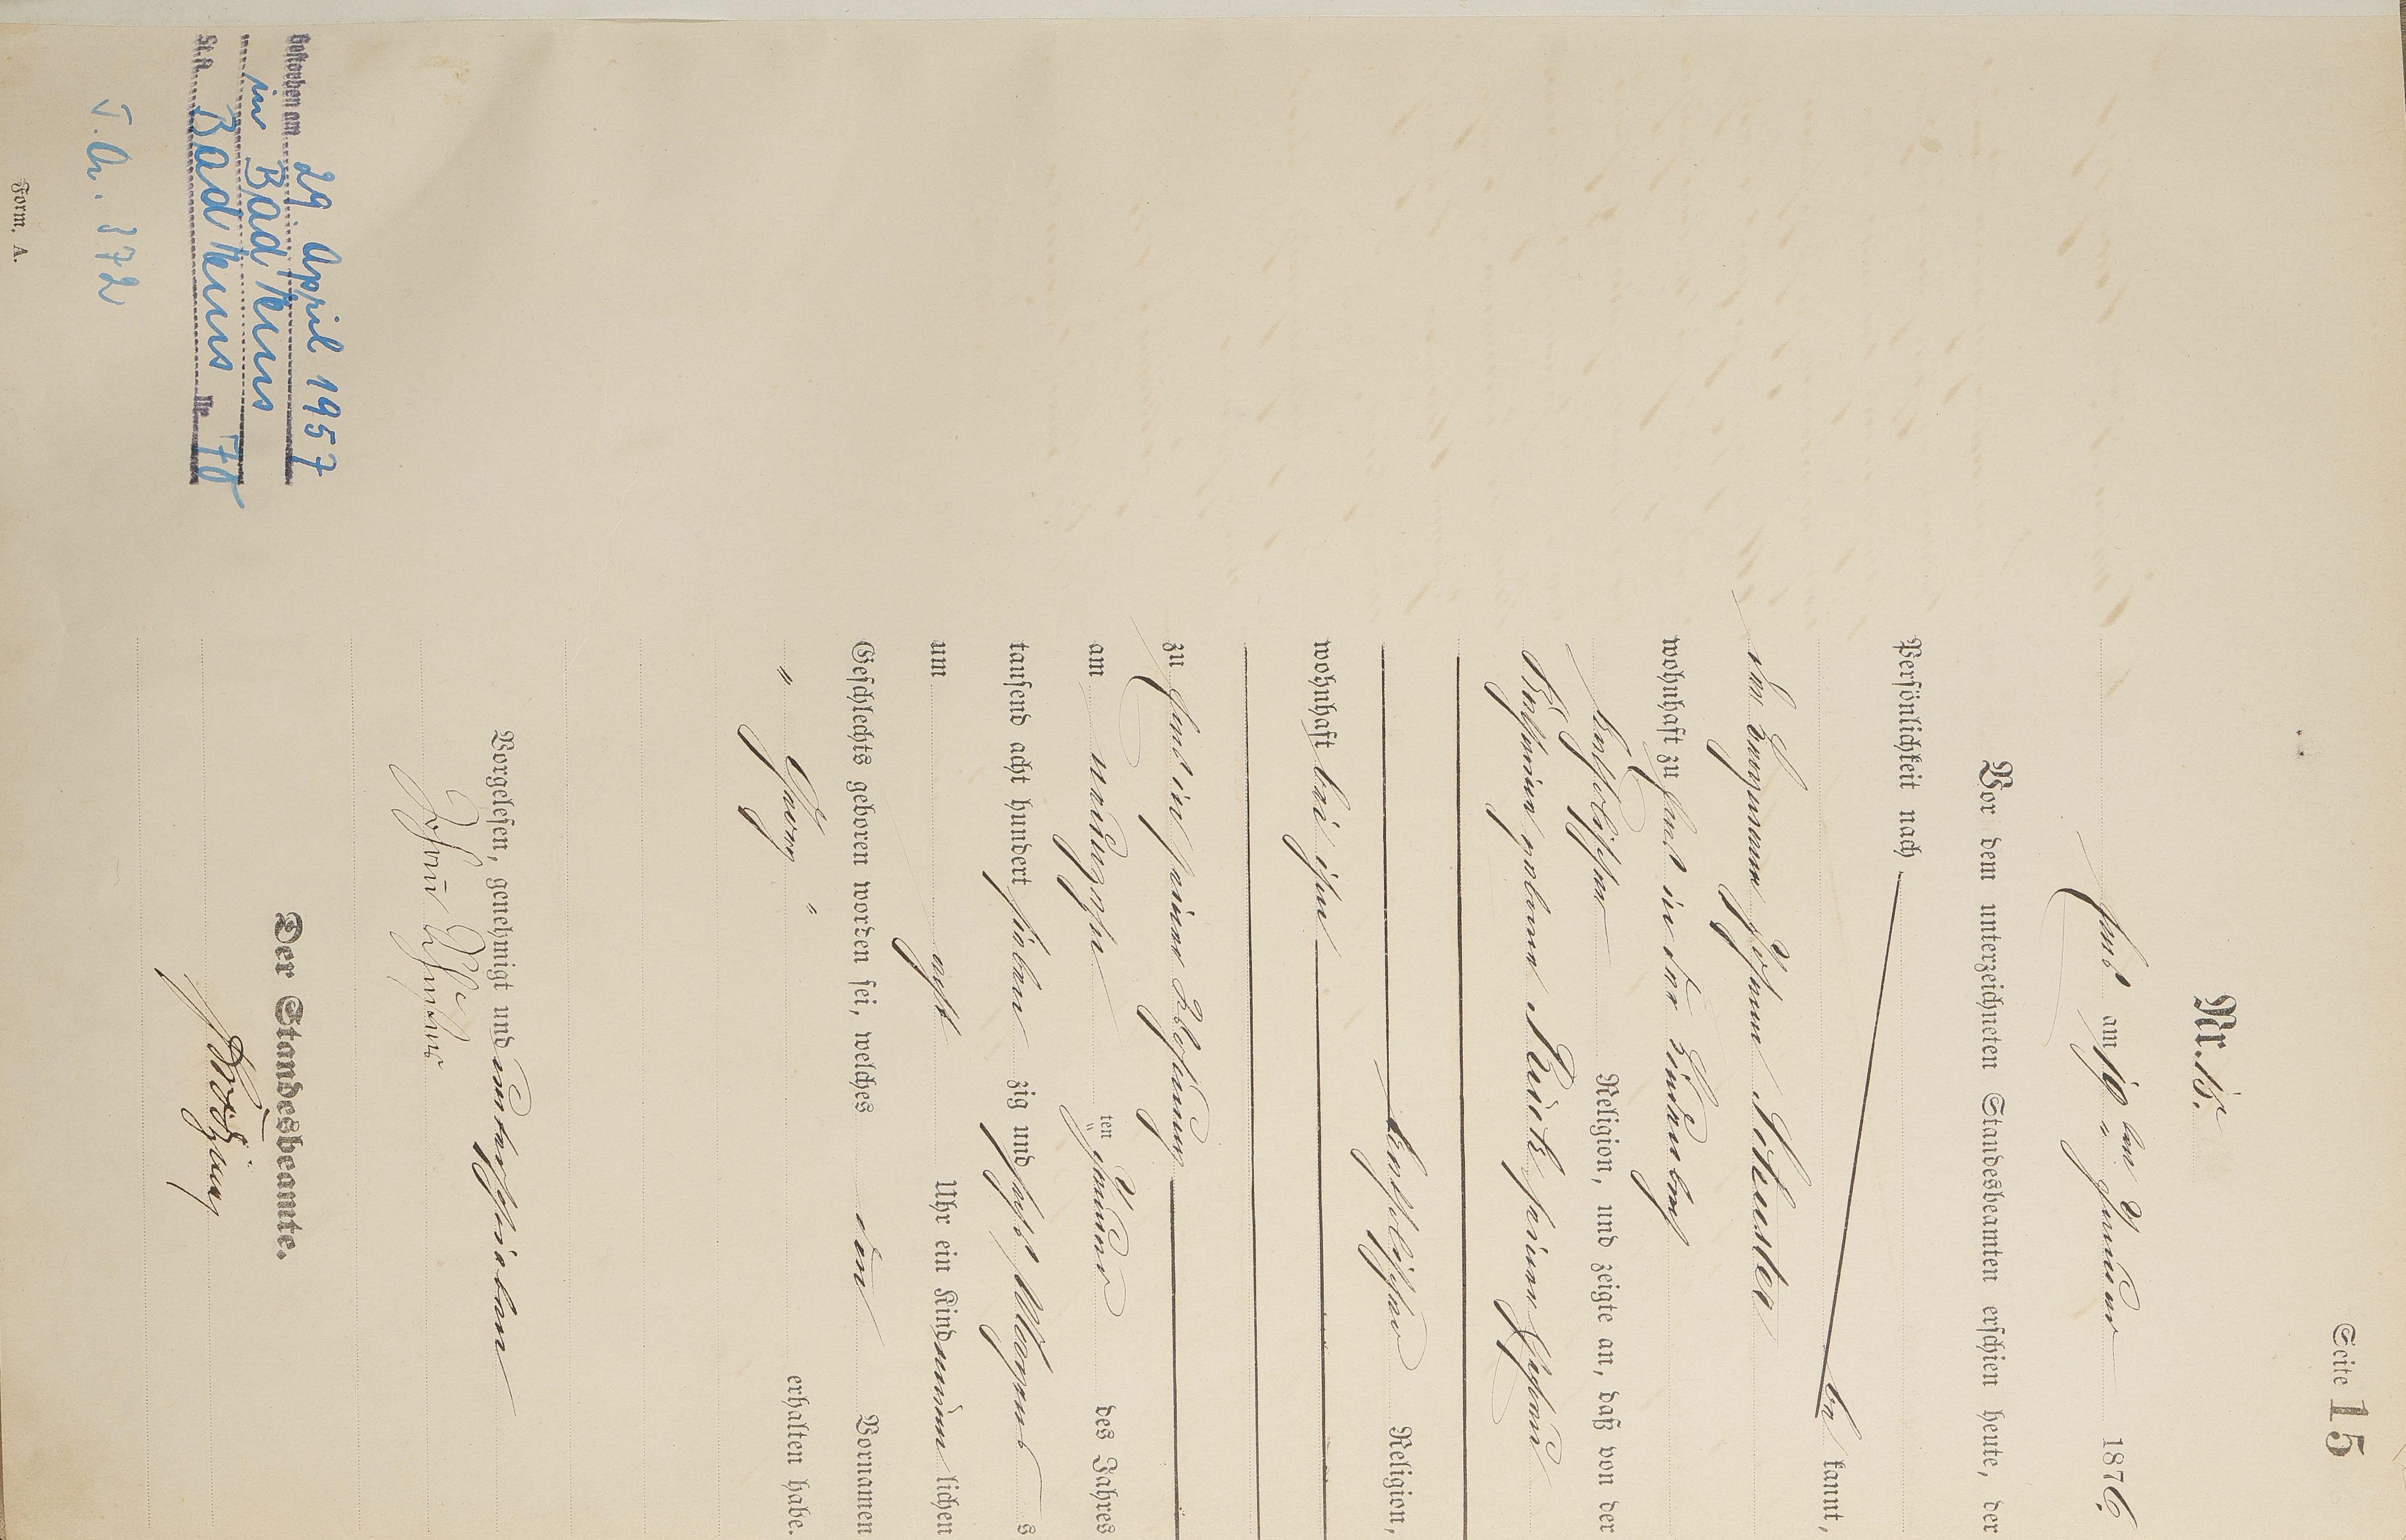 Seite 15
Nr. 15.
am 19 ten Januar 1876.
Vor dem unterzeichneten Standesbeamten erschien heute, der
Persönlichkeit nach
be kannt,
der Bergmann Johann Schuster
wohnhaft zu in der Lindenbach
katholischer Religion, und zeigte an, daß von der
geborene seiner Ehefrau
katholischer Religion,
wohnhaft bei ihm
zu in seiner Wohnung
am neunzehn ten Januar des Jahres
tausend acht hundert sieben zig und sechs Morgens s
um acht Uhr ein Kind männ lichen
Geschlechts geboren worden sei, welches den Vornamen
" Georg " erhalten habe.
Vorgelesen, genehmigt und unterschrieben
Johann Schuster
Der Standesbeamte.
Gestorben am 29 April 1957
in Bad Ems
St.A. Bad Ems Nr. 78
Form. A.